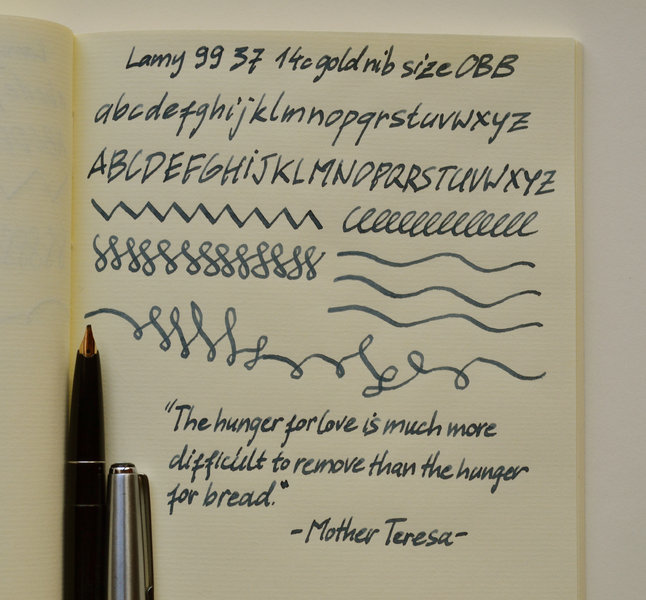 Lamy 99 37 14c gold nib size OBB
abcdefghijklmnopqrstuvwxyz
ABCDEFGHiJKLMNOPQRSTUVWXYZ
"The hunger for love is much more
difficult to remove than the hunger
for bread."
-Mother Teresa-